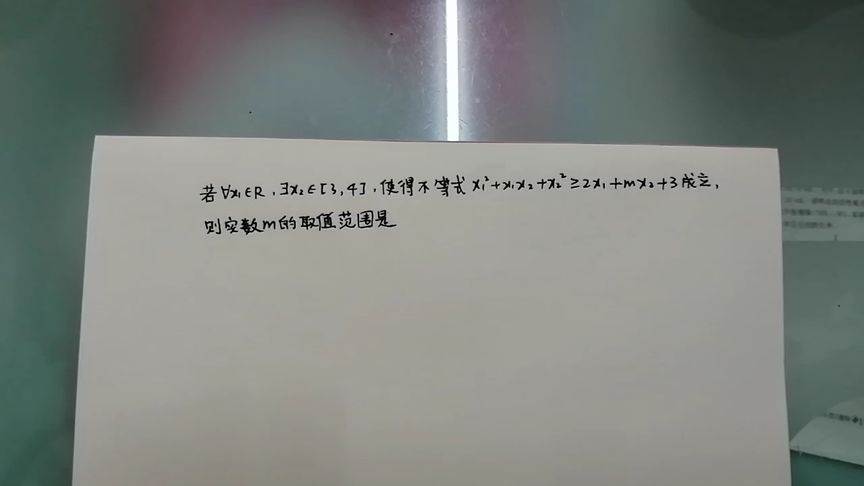 若∀x₁∈R,∃x₂∈[3,4],使得不等式x₁²+x₁x₂+x₂²≥2x₁+mx₂+3成立,
则实数m的取值范围是